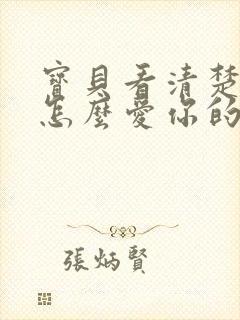 寶貝看清楚
怎麼愛你的
張炳賢